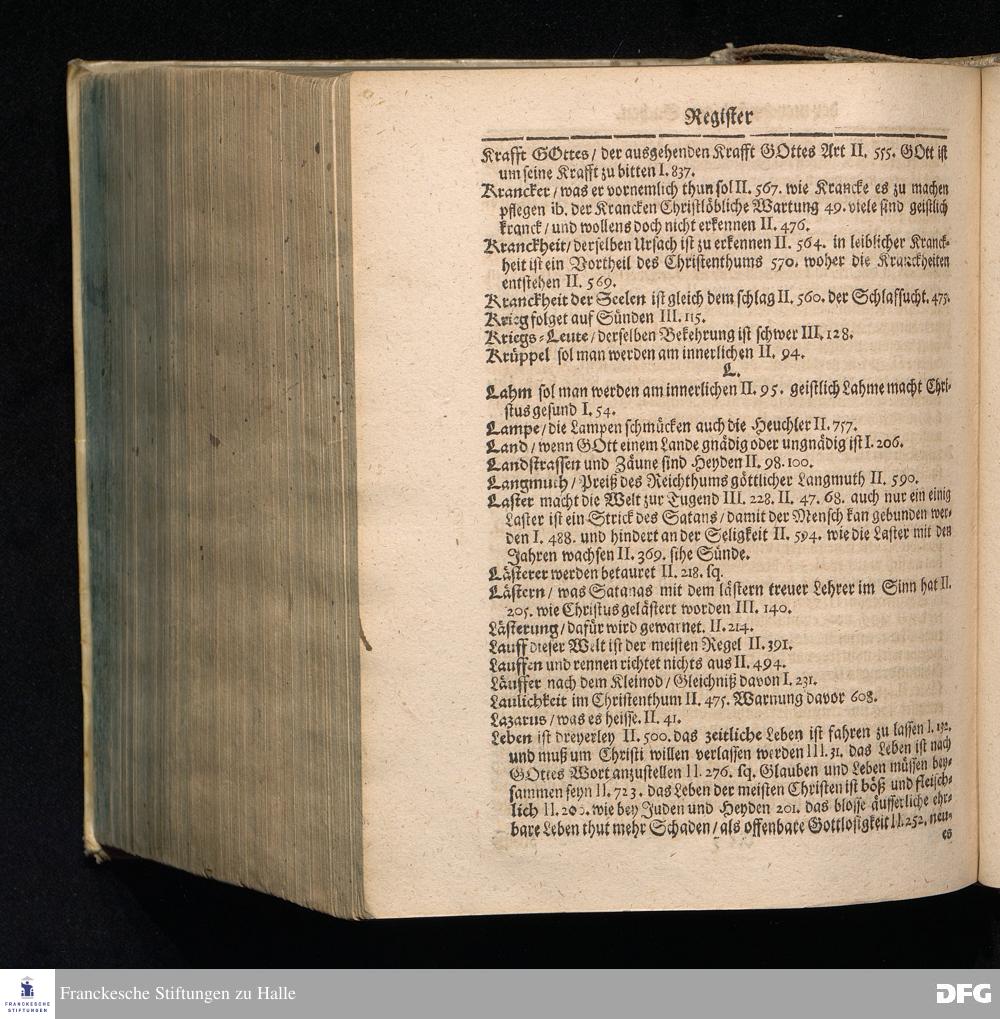 Register
Krafft GOttes / der ausgehenden Krafft GOttes Art II. 555. GOtt ist
um seine Krafft zu bitten I. 837.
Krancker / was er vornemlich thun sol II. 567. wie Krancke es zu machen
pflegen ib. der Krancken Christlöbliche Wartung 49. viele sind geistlich
kranck / und wollens doch nicht erkennen II. 476.
Kranckheit / derselben Ursach ist zu erkennen II. 564. in leiblicher Kranck-
heit ist ein Vortheil des Christenthums 570. woher die Kranckheiten
entstehen II. 569.
Kranckheit der Seelen ist gleich dem schlag II. 560. der Schlafsucht. 475.
Krieg folget auf Sünden III. 115.
Kriegs-Leute / derselben Bekehrung ist schwer III. 128.
Krüppel sol man werden am innerlichen II. 94.
L.
Lahm sol man werden am innerlichen II. 95. geistlich Lahme macht Chri-
stus gesund I. 54.
Lampe / die Lampen schmücken auch die Heuchler II. 757.
Land / wenn GOtt einem Lande gnädig oder ungnädig ist I. 206.
Landstrassen und Zäune sind Heyden II. 98. 100.
Langmuth / Preiß des Reichthums göttlicher Langmuth II. 590.
Laster macht die Welt zur Tugend III. 228. II. 47. 68. auch nur ein einig
Laster ist ein Strick des Satans / damit der Mensch kan gebunden wer-
den I. 488. und hindert an der Seligkeit II. 594. wie die Laster mit den
Jahren wachsen II. 369. sihe Sünde.
Lästerer werden betauret II. 218. sq.
Lästern / was Satanas mit dem lästern treuer Lehrer im Sinn hat II.
205. wie Christus gelästert worden III. 140.
Lästerung / dafür wird gewarnet. II. 214.
Lauff dieser Welt ist der meisten Regel II. 391.
Lauffen und rennen richtet nichts aus II. 494.
Läuffer nach dem Kleinod / Gleichniß davon I. 231.
Laulichkeit im Christenthum II. 475. Warnung davor 608.
Lazarus / was es heisse. II. 41.
Leben ist dreyerley II. 500. das zeitliche Leben ist fahren zu lassen I. 192.
und muß um Christi willen verlassen werden III. 31. das Leben ist nach
GOttes Wort anzustellen II. 276. sq. Glauben und Leben müssen bey-
sammen seyn II. 723. das Leben der meisten Christen ist böß und fleisch-
lich II. wie bey Juden und Heyden 201. das blosse äusserliche ehr-
bare Leben thut mehr Schaden / als offenbare Gottlosigkeit II. 252. neu-
es
FRANCKESCHE
STIFTUNGEN
Franckesche Stiftungen zu Halle
DFG